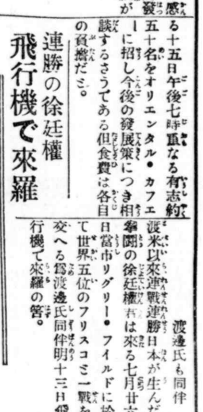 感
發
が
る十五日午後七時重なる有志約
五十名をオリエンタル・カフエ
ーに招し今後の發展策につき相
談するさうである但食費は各自
の負擔だと。
連勝の徐廷權
飛行機で來羅
渡邊氏も同伴
渡米以來連戰連勝日本が生んだ
拳鬪の徐廷權君は來る七月廿六
日當市リグリー・フイルドに於
て世界五位のフリスコと一戰を
交へる爲渡邊氏同伴明十三日飛
行機で來羅の筈。